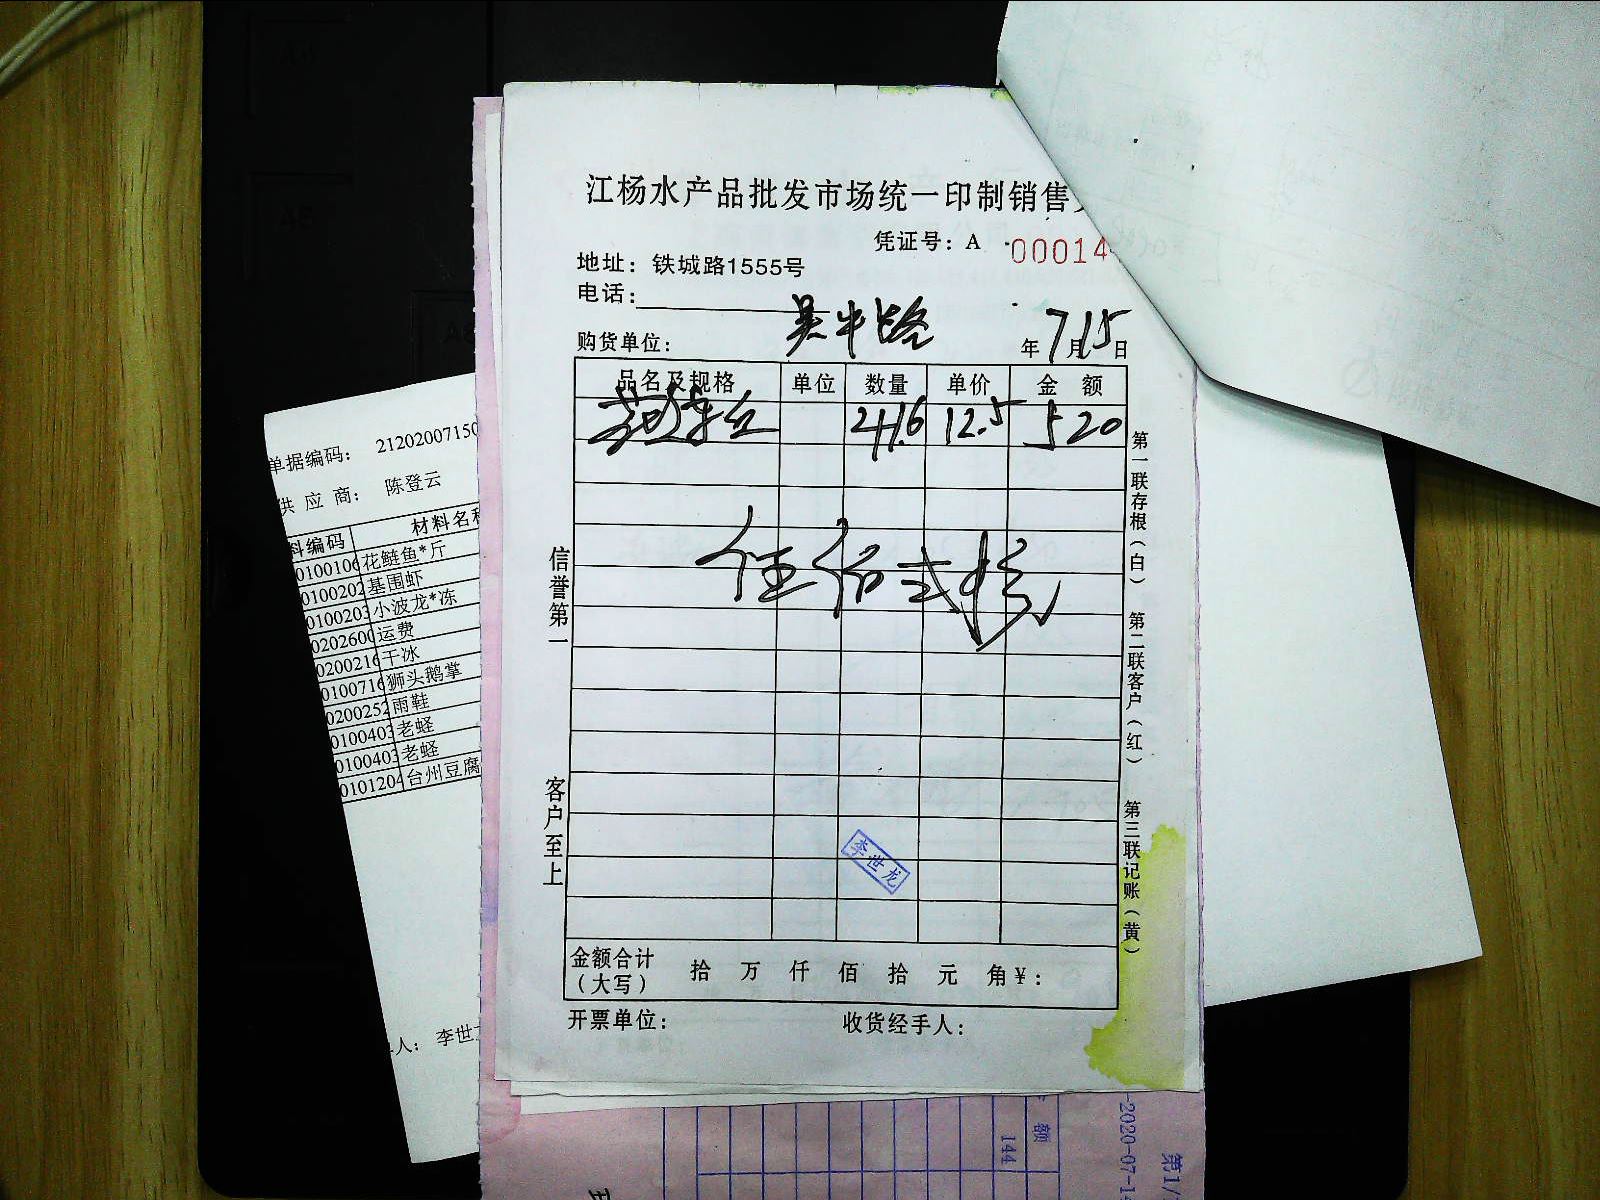 江杨水产品批发市场统一印制销售
凭证号：A 00014
地址：铁城路1555号
电话：
购货单位： 吴中路 年 7月15日
品名及规格 单位 数量 单价 金 额
41.6 12.5 520
伍佰弍拾
信誉第一
客户至上
第一联存根（白） 第二联客户（红） 第三联记账（黄）
李世龙
金额合计（大写） 拾 万 仟 佰 拾 元 角 ¥：
开票单位： 收货经手人：
单据编码： 21202007150
供 应 商： 陈登云
料编码 材料名称
0100106 花鲢鱼*斤
0100202 基围虾
0100203 小波龙*冻
0202600 运费
0200216 干冰
0100716 狮头鹅掌
0200252 雨鞋
0100403 老蛏
0100403 老蛏
0101204 台州豆腐
人： 李世
额
144
-2020-07-14
第1/